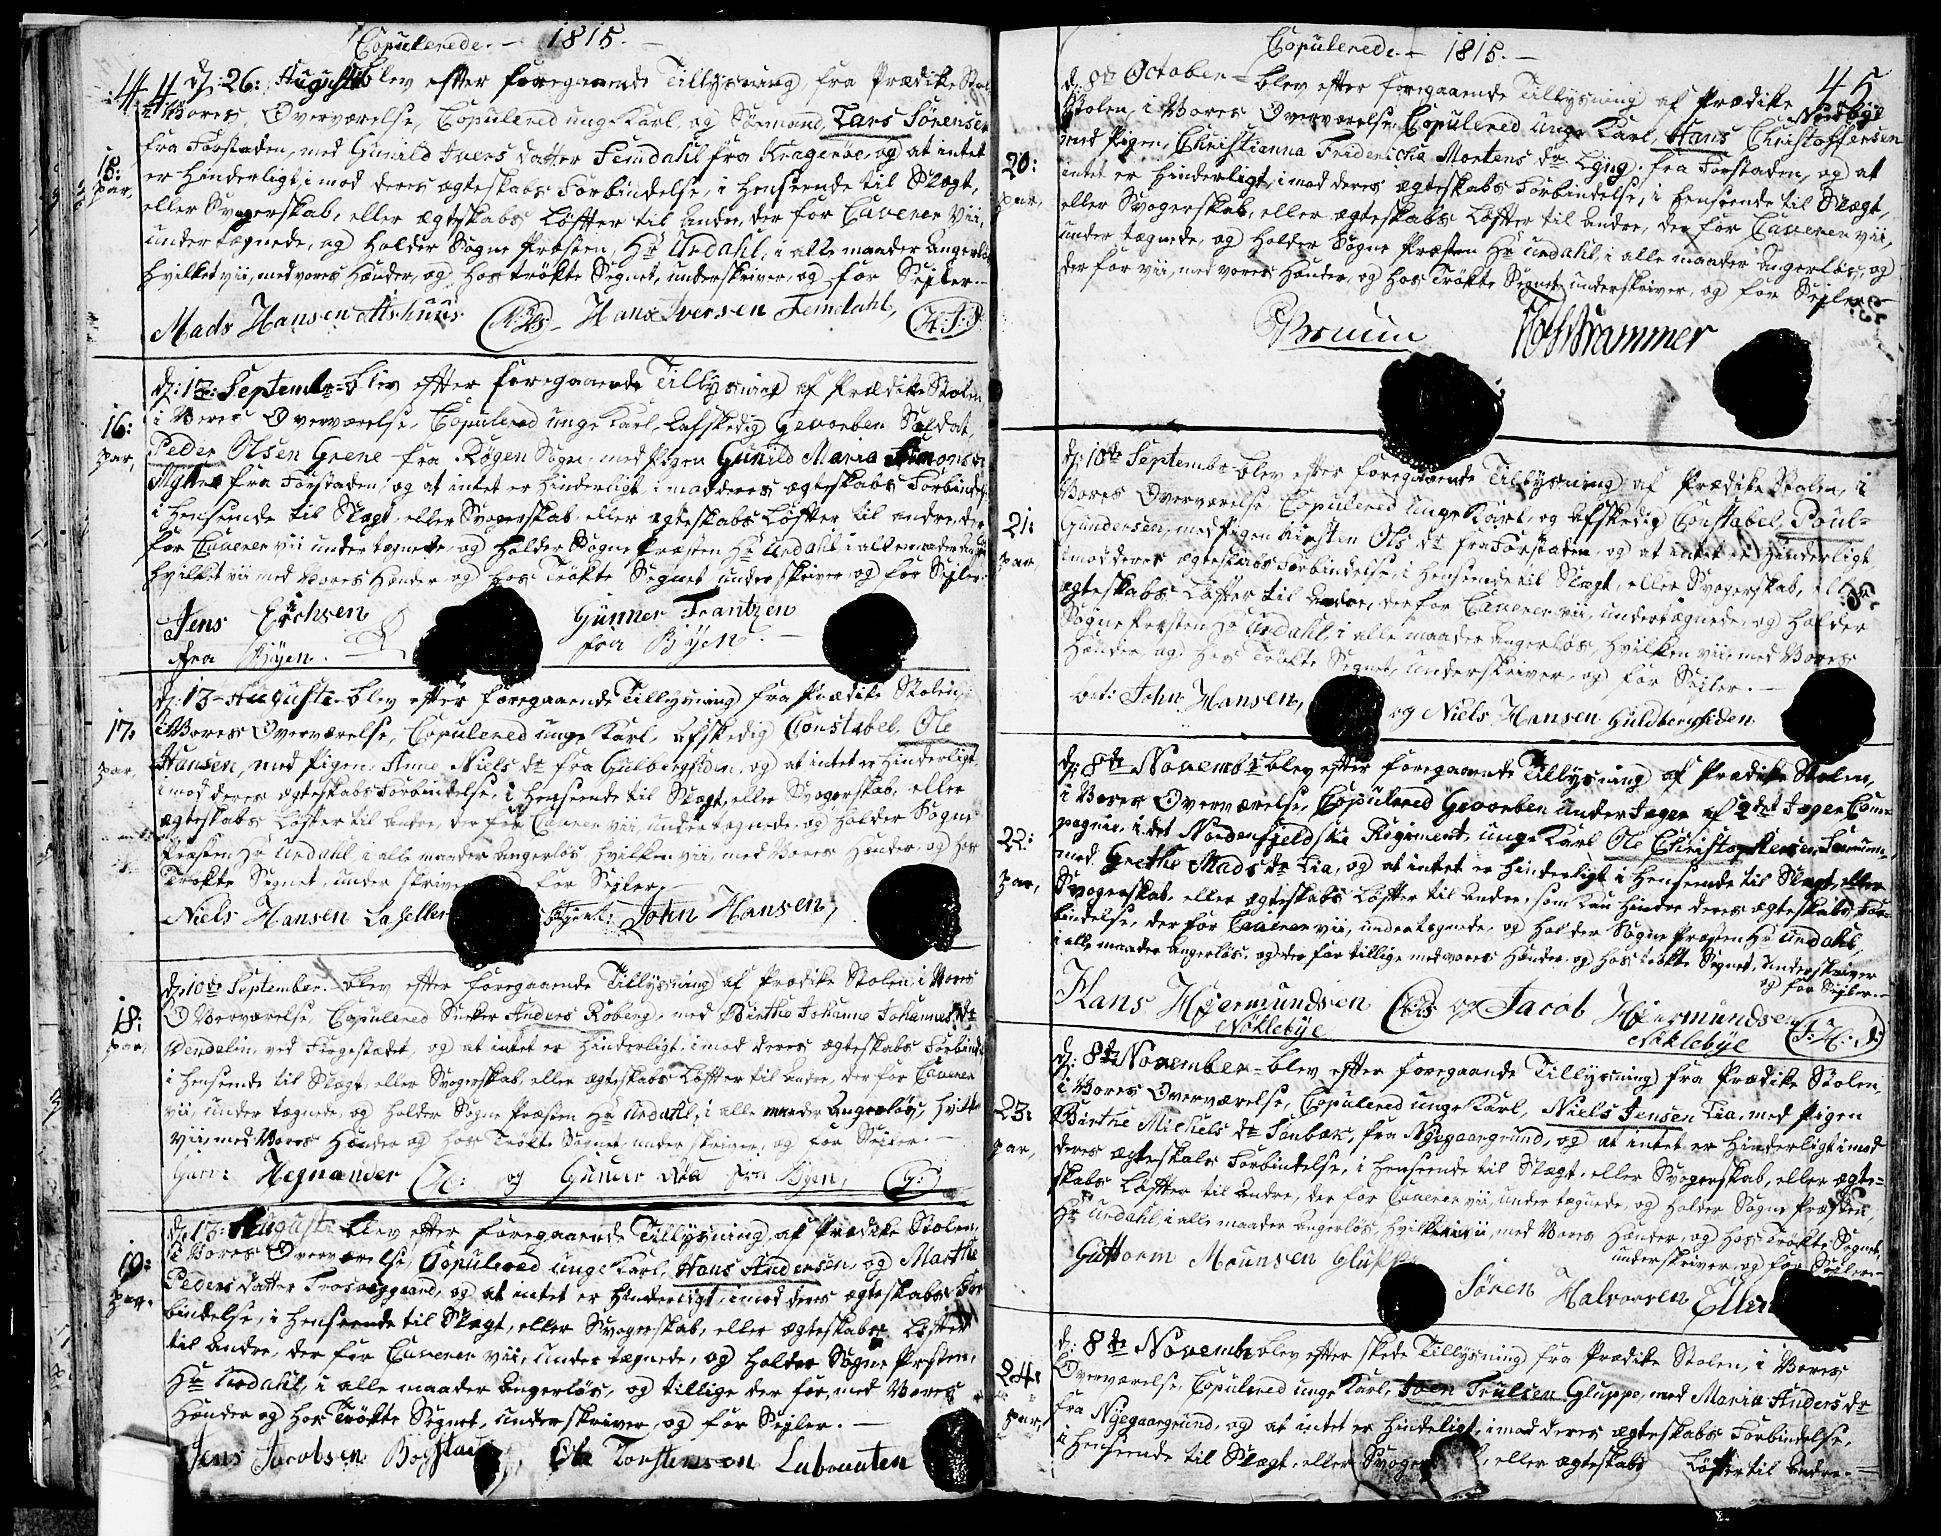 Copulerede. - 1815. -
44
15: par,
d: 26: Augusti blev efter foregaaende Tillysning, fra Prædike Stol
i Vores, Overværelse, Copulered unge Karl og Sömand, Lars Sörensen
fra Forstaden, med Gunild Ivers datter Femdahl fra Kragerøe, og at intet
er Hinderligt, i mod deres ægteskabs Forbindelse, i Henseende til Slægt,
eller Svogerskab, eller ægteskabs Løffter til Andre, der for Caverer vii,
under tægnede, og holder Sogne Præsten, Hr Urdahl, i alle maader Angerløs
hvilket vii, med vores Hænder, og hos trökte Segnet, underskriver, og for Sejler. -
Mads Hansen Ashuus Hans Iversen Femdahl,
16: par,
d: 13: Septembr blev efter foregaaende Tillysning af Prædike Stolen
i Vores Overværelse, Copulered unge Karl, Aafskedig Gevorben Soldat,
Peder Olsen Grene fra Røgen Sogn, med Pigen Gunild Maria Simons
fra Forstaden, og at intet er Hinderligt, i mod deres ægteskabs Forbindelse
i Henseende til Slægt, eller Svogerskab, eller ægteskabs Løfter til andre, der
for Caverer vii under tægnede, og holder Sogne Præsten Hr Urdahl i alle maader
hvilket vii med Vores Hænder og hos Trökte Segnet under skriver og for Sejler.
Jens Erichsen Gunner Frantzen
fra Byen. fra Byen. -
17: par,
d: 13 - Augusti blev efter foregaaende Tillysning, fra Prædike Stolen,
i Vores Overværelse, Copulered unge Karl, Afskedig Constabel, Ole
Hansen, med Pigen, Anne Niels dr fra Gulbergsiden, og at intet er Hinderligt,
i mod deres ægteskabs Forbindelse, i Henseende til Slægt, eller Svogerskab, eller
ægteskabs Løffter til Andre, der for Caverer vii, under tægnede, og holder Sogne
Præsten Hr Urdahl, i alle maader Angerløs, hvilken vii, med Vores Hænder, og hos
Trökte Segnet, under skriver for Sejler, -
Niels Hansen John Hansen,
18: par,
d: 10de September. - blev efter foregaaende Tillysning af Prædike Stolen, i Vores
Overværelse, Copulered Anders Roberg, med Birthe Johanne Johannes dr
Wendelin, ved Fergestadet, og at intet er Hinderligt, i mod deres ægteskabs Forbindelse
i Henseende til Slægt, eller Svogerskab, eller ægteskabs Løffter til Andre, der for Caverer
vii, under tægnede, og holder Sogne Præsten Hr Urdahl, i alle maader Angerløs,
vii, med Vores Hænder og hos Trökte Segnet, under skriver, og for Sejler. -
Hegnander og Gunder fra Byen,
19: par.
d: 13: Augusti blev efter foregaaende Tillysning, af Prædike Stolen,
i Vores Overværelse, Copulered unge Karl, Hans Andersen, og Marthe
Peders datter, og at intet er Hinderligt, i mod deres ægteskabs For
bindelse, i Henseende til Slægt, eller Svogerskab, eller ægteskabs Løffter
til Andre, der for Caverer vii, under tægnede, og holder Sogne Præsten,
Hr Urdahl, i alle maader Angerløs, og tillige der for, med Vores
Hænder og hos Trökte Segnet, underskriver, og for Sejler. -
Jens Jacobsen Ole Torstensen
Copulerede. - 1815. -
45
20: par,
d: 8de October - blev efter foregaaende Tillysning af Prædike
Stolen, i Vores Overværelse, Copulered unge Karl, Hans Christoffersen
med Pigen, Christianna Friderica Mortens dr Lyng, fra Forstaden, og at
intet er Hinderligt, i mod deres ægteskabs Forbindelse, i Henseende til Slægt,
eller Svogerskab, eller ægteskabs Løffter til Andre, der for Caverer vii,
under tægnede, og holder Sogne Præsten Hr Urdahl, i alle maader Angerløs, og
der for vii, med vores Hænder, og hos Trökte Segnet underskriver, og for Sejler. -
Bruun
21: par,
d: 10de Septembr blev efter foregaaende Tillysning af Prædike Stolen, i
Vores Overværelse Copulered unge Karl, og Afskedig Constabel, Poul
Gundersen, med Pigen Kirsten Ols dr fra Forstaden, og at intet er Hinderligt
i mod deres ægteskabs Forbindelse, i Henseende til Slægt, eller Svogerskab, eller
ægteskabs Løffter til Andre, der for Caverer vii, undertægnede, og holder
Sogne Præsten Hr Urdahl, i alle maader Angerløs, hvilken vii, med Vores
Hænder og hos Trökte Segnet, underskriver, og for Sejler. -
John Hansen, og Niels Hansen Guldbergsiden
22: par,
d: 8de Novembr blev efter foregaaende Tillysning af Prædike Stolen,
i Vores Overværelse, Copulered Gevorben under Jæger af 2det Jæger Com-
pagnie, i det Nordenfjeldske Regiment, unge Karl Ole Christophersen
med Grethe Mads dr Lia, og at intet er Hinderligt i Henseende til Slægt, eller
Svogerskab, eller ægteskabs Løffter til Andre, som kan hindre deres ægteskabs For-
bindelse, der for Caverer vii, under tægnede, og holder Sogne Præsten Hr Urdahl,
i alle maader Angerløs, og der for tillige med vores Hænder og hos trökte Segnet, underskriver
og for Sejler. -
Hans Hiermundsen og Jacob Hiermundsen
Nöklebye Nöklebye
23: par,
d: 8de November - blev efter foregaaende Tillysning, fra Prædike Stolen,
i Vores Overværelse, Copulered unge Karl, Niels Jensen Lia, med Pigen
Birthe Michels dr, fra Nyegaargrund, og at intet er Hinderligt i mod
deres ægteskabs Forbindelse, i Henseende til Slægt, eller Svogerskab, eller ægte-
skabs Løffter til Andre, der for Caverer vii, under tægnede, og holder Sogne Præsten,
Hr Urdahl, i alle maader Angerløs, hvilken vii, med Vores Hænder, og hos Trökte Segnet,
underskriver, og for Sejler. -
Guttorm Mounsen Gluppe
Sören Halvorsen
24: par,
d: 8de Novembr blev efter skede Tillysning fra Prædike Stolen, i Vores
Overværelse, Copulered unge Karl, Iven Trulsen Gluppe, med Maria Anders dr
fra Nyegaargrund, og at intet er Hindeligt, i mod deres ægteskabs Forbindelse,
i Henseende til Slægt, eller, eller ægteskabs Løffter til Andre. -